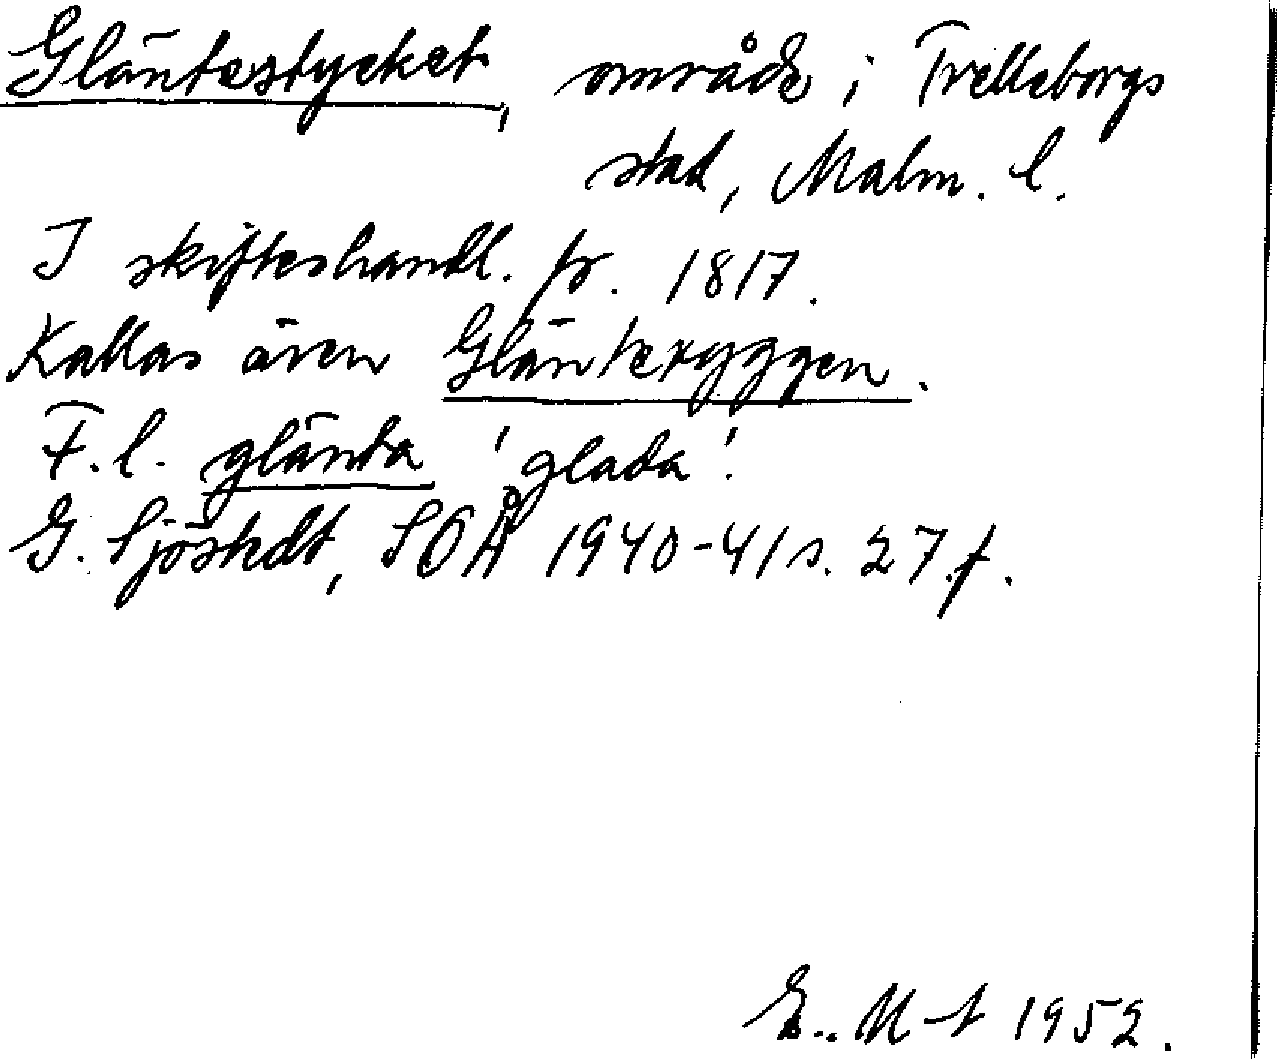 Gläntestycket, område i Trelleborgs
stad, Malm. l.
I skifteshandl. fr. 1817.
Kallas även Glänteryggen.
F. l. glänta 'glada'.
G. Sjöstedt, SOÅ 1940-41 s. 27 f.
E. M-t 1952.